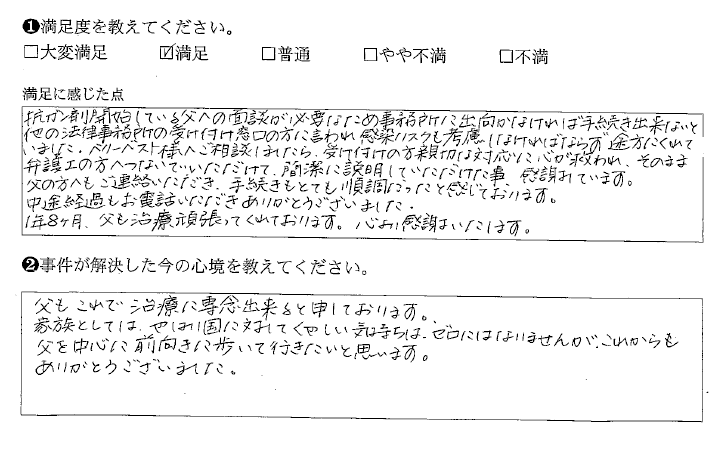 ❶満足度を教えてください。
□大変満足 ☑満足 □普通 □やや不満 □不満
満足に感じた点
抗ガン剤開始している父への面談が必要なため事務所に出向かなければ手続き出来ないと
他の法律事務所の受け付け窓口の方に言われ感染リスクも考慮しなければならず途方にくれて
いました。ベリーベスト様へご相談しましたら、受け付けの方親切な対応に心が救われ、そのまま
弁護士の方へつないでいただけて、簡潔に説明していただけた事 感謝しています。
父の方へもご連絡いただき、手続きもとても順調だったと感じております。
中途経過もお電話いただきありがとうございました。
1年8ヶ月、父も治療頑張ってくれております。心より感謝いたします。
❷事件が解決した今の心境を教えてください。
父もこれで治療に専念出来ると申しております。
家族としては、やはり国に対してくやしい気持ちは、ゼロにはなりませんが、これからも
父を中心に前向きに歩いて行きたいと思います。
ありがとうございました。